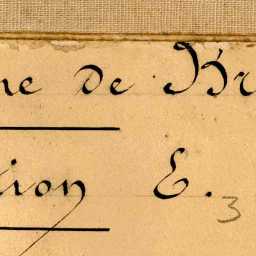 ne de Br
tion E.
3